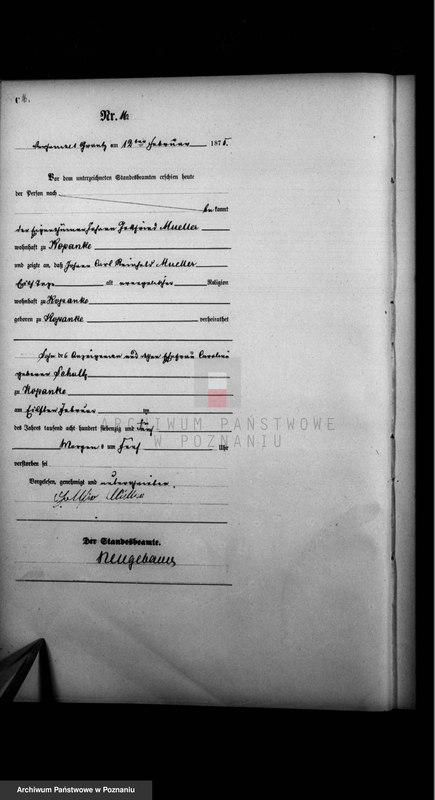 Nr.
am 12ten Februar 1875.
Vor dem unterzeichneten Standesbeamten erschien heute
der Person nach
be kannt
der Eigenthümer Johann Gottfried Mueller
wohnhaft zu Kopanke
und zeigte an, daß Johann Carl Reinhold Mueller
Tage alt evangelischer Religion
wohnhaft zu Kopanke
geboren zu Kopanke verheirathet
Sohn des Anzeigenden und Ehefrau
geborener Schultz
zu Kopanke
am Elften Februar
des Jahres tausend acht hundert siebenzig und fünf
Morgens um fünf Uhr
verstorben sei
Vorgelesen, genehmigt und unterschrieben.
Müller
Der Standesbeamte.
Neugebauer
ARCHIWUM PAŃSTWOWE
W POZNANIU
Archiwum Państwowe w Poznaniu